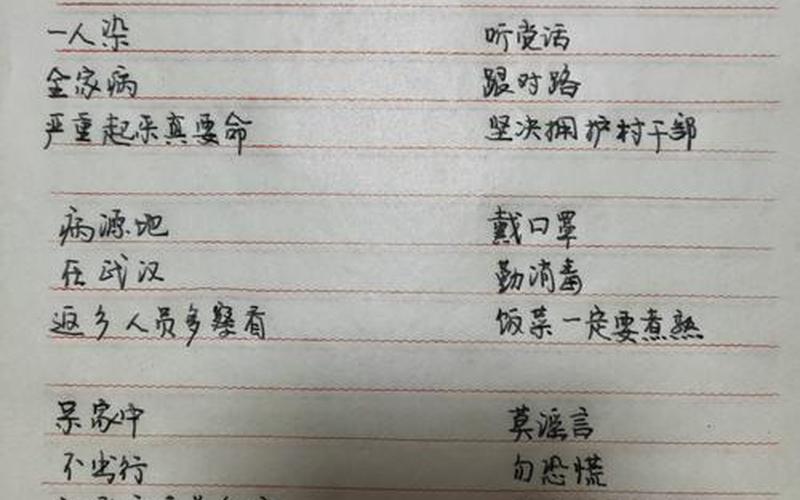 一人染
全家病
严重起来真要命
病源地
在武汉
返乡人员多察看
呆家中
不出行
听党话
跟对路
坚决拥护村干部
戴口罩
勤消毒
饭菜一定要煮熟
莫谣言
勿恐慌